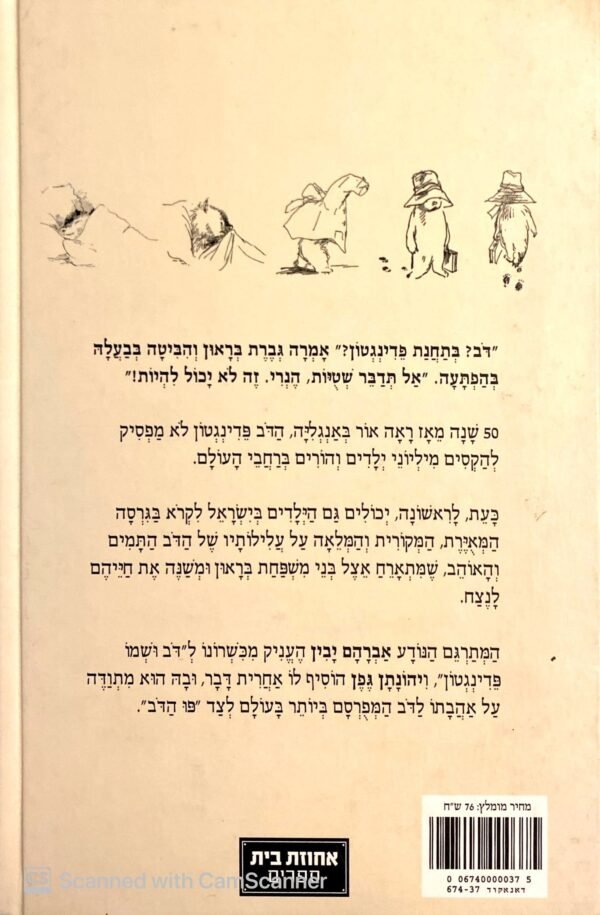 "דֹּב? בְּתַחֲנַת פֶּדִינְגְטוֹן?" אָמְרָה גְּבֶרֶת בְּרָאוּן וְהִבִּיטָה בְּבַעֲלָהּ
בְּהַפְתָּעָה. "אַל תְּדַבֵּר שְׁטֻיּוֹת, הֶנְרִי. זֶה לֹא יָכוֹל לִהְיוֹת!"
50 שָׁנָה מֵאָז רָאָה אוֹר בְּאַנְגְלִיָּה, הַדֹּב פֶּדִינְגְטוֹן לֹא מַפְסִיק
לְהַקְסִים מִילְיוֹנֵי יְלָדִים וְהוֹרִים בְּרַחֲבֵי הָעוֹלָם.
כָּעֵת, לָרִאשׁוֹנָה, יְכוֹלִים גַּם הַיְּלָדִים בְּיִשְׂרָאֵל לִקְרֹא בַּגִּרְסָה
הַמְּאֻיֶּרֶת, הַמְּקוֹרִית וְהַמְּלֵאָה עַל עֲלִילוֹתָיו שֶׁל הַדֹּב הַתָּמִים
וְהָאוֹהֵב, שֶׁמִּתְאָרֵחַ אֵצֶל בְּנֵי מִשְׁפַּחַת בְּרָאוּן וּמְשַׁנֶּה אֶת חַיֵּיהֶם
לָנֶצַח.
הַמְּתַרְגֵּם הַנּוֹדָע אַבְרָהָם יָבִין הֶעֱנִיק מִכִּשְׁרוֹנוֹ לְ"דֹּב וּשְׁמוֹ
פֶּדִינְגְטוֹן", וִיהוֹנָתָן גֶּפֶן הוֹסִיף לוֹ אַחֲרִית דָּבָר, וּבָהּ הוּא מִתְוַדֶּה
עַל אַהֲבָתוֹ לַדֹּב הַמְּפֻרְסָם בְּיוֹתֵר בָּעוֹלָם לְצַד "פּוּ הַדֹּב".
מחיר מומלץ: 76 ש"ח
0 06740000037 5
דאנאקוד 674-37
אחוזת בית
ספרים
CS Scanned with CamScanner